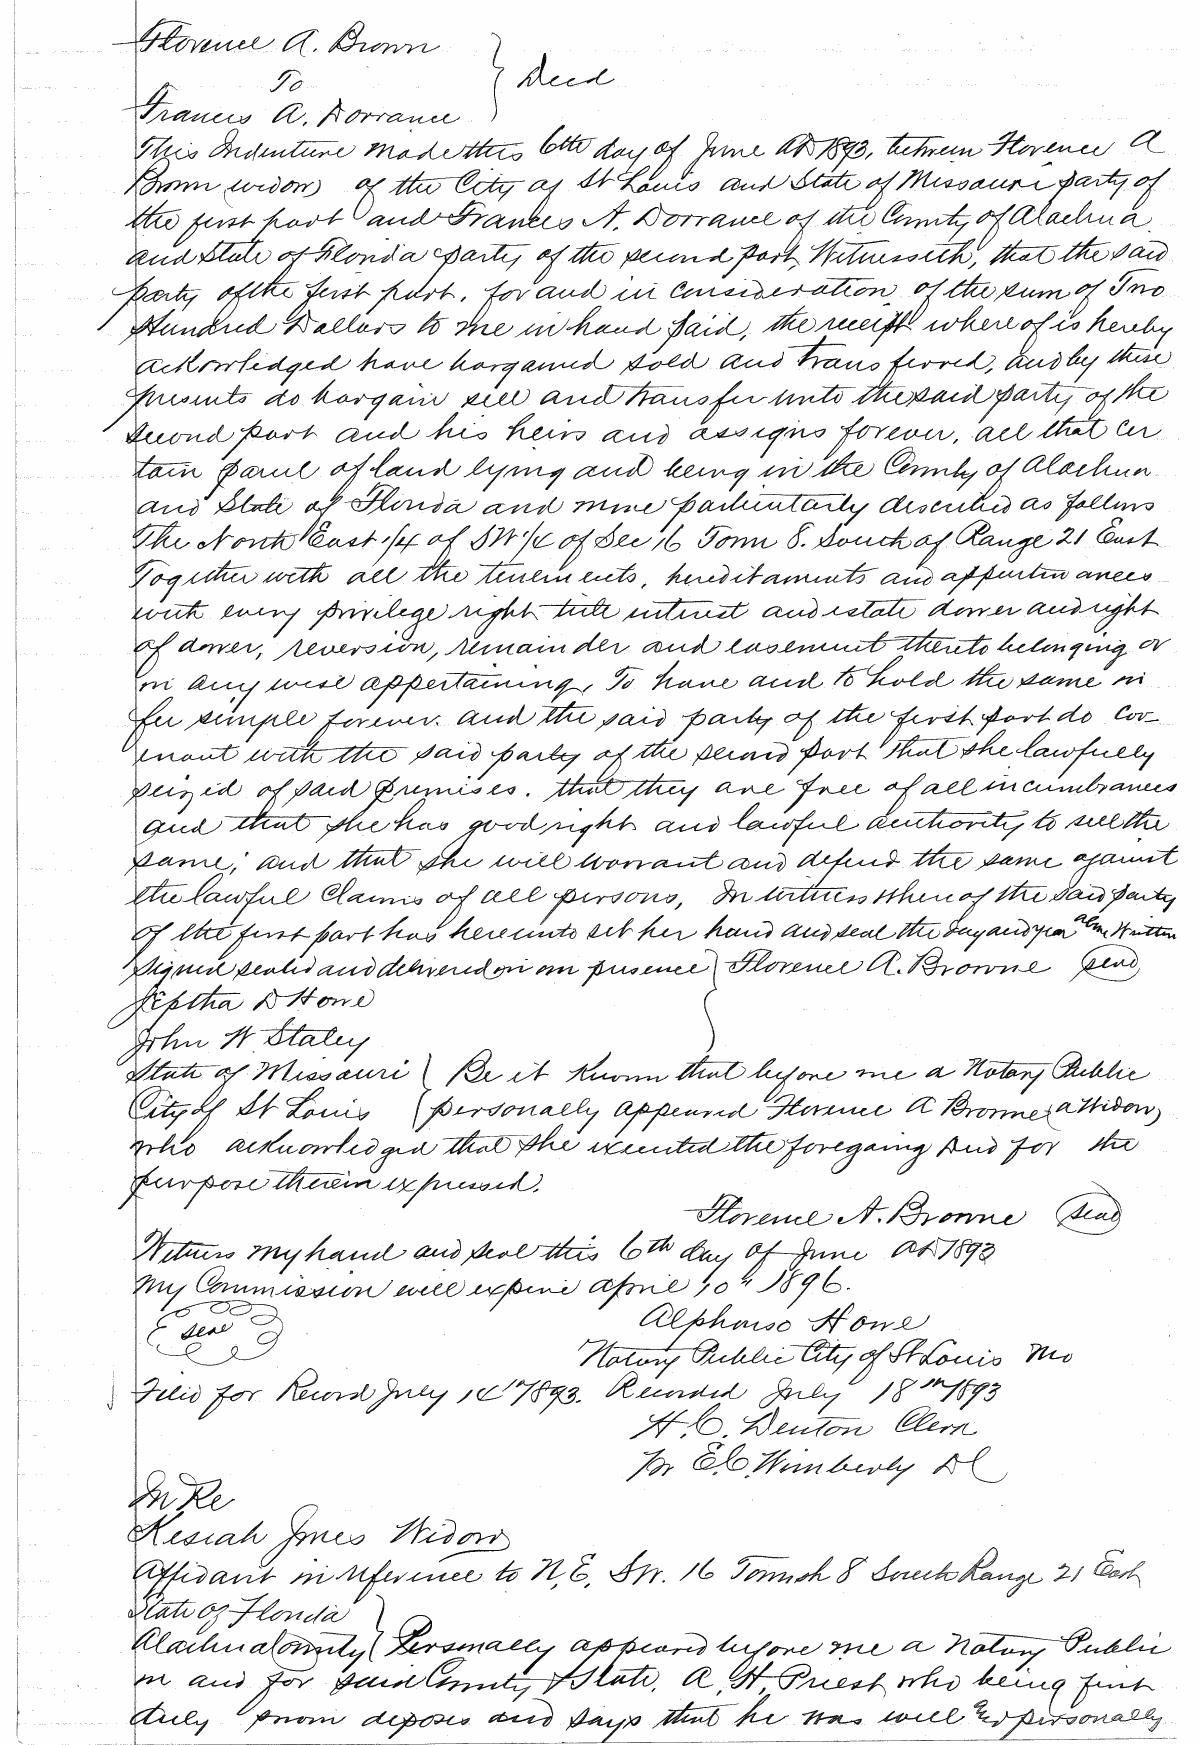 Florence A. Brown
To } Deed
Francis A. Dorrance
This Indenture made this 6th day of June AD 1893, between Florence A
Brown (widow) of the City of St Louis and State of Missouri party of
the first part and Frances A. Dorrance of the County of Alachua
and State of Florida party of the second part, Witnesseth, that the said
party of the first part, for and in consideration of the sum of Two
Hundred Dollars to me in hand paid, the receipt where of is hereby
acknowledged have bargained sold and transferred, and by these
presents do bargain sell and transfer unto the said party of the
second part and his heirs and assigns forever, all that cer
tain parcel of land lying and being in the County of Alachua
and State of Florida and more particularly described as follows
The North East 1/4 of SW 1/4 of Sec 16 Town 8. South of Range 21 East
Together with all the tenements, hereditaments and appurtenances
with every privilege right title interest and estate dower and right
of dower, reversion, remainder and easement thereto belonging or
in any wise appertaining, To have and to hold the same in
fee simple forever. and the said party of the first part do cov-
enant with the said party of the second part that she lawfully
seized of said premises. that they are free of all incumbrances
and that she has good right and lawful authority to sell the
same; and that she will warrant and defend the same against
the lawful claims of all persons, In witness where of the said party
of the first part has hereunto set her hand and seal the day and year above written
Signed sealed and delivered in our presence } Florence A. Browne (seal)
Jeptha D Howe
John W Staley
State of Missouri } Be it known that before me a Notary Public
City of St Louis } personally appeared Florence A Browne (a Widow)
who acknowledged that she executed the foregoing Deed for the
purpose therein expressed.
Florence A. Browne (seal)
Witness my hand and seal this 6th day of June AD 1893
My Commission will expire april 10th 1896.
(seal) Alphonso Howe
Notary Public City of St Louis Mo
Filed for Record July 14th 1893. Recorded July 18th 1893
H. C. Denton Clerk
pr E.C. Wimberly DC
In Re
Kesiah Jones Widow
Affidavit in reference to N.E. SW. 16 Township 8 South Range 21 East
State of Florida }
Alachua County } Personally appeared before me a Notary Public
in and for said County & State, A. H. Priest who being first
duly sworn deposes and says that he was well & personally